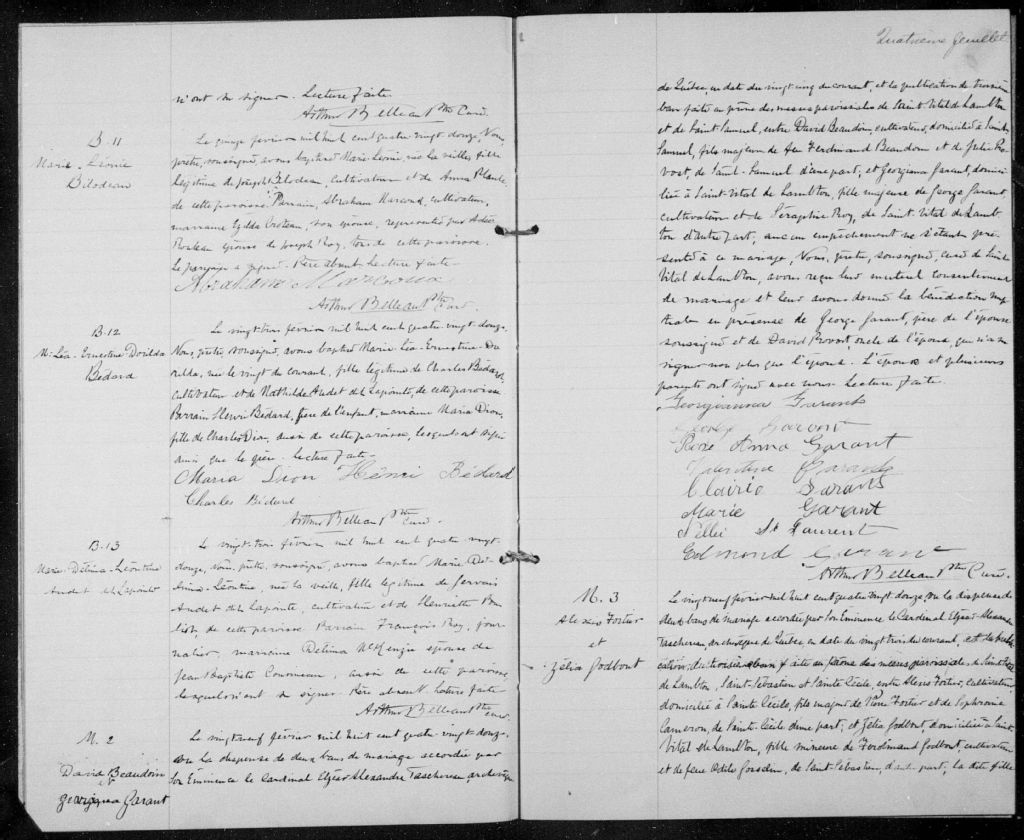 n'ont su signer. Lecture faite
Arthur Belleau Ptre Curé.
B-11
Marie-Léonie
Bilodeau
Le quinze février mil huit cent quatre vingt douze, Nous,
prêtre, soussigné, avons baptisé Marie-Léonie, née la veille, fille
légitime de Joseph Bilodeau, cultivateur et de Anna Plante
de cette paroisse. Parrain, Abraham Marcoux, cultivateur,
marraine Croteau, son épouse, représentée par
épouse de Joseph Roy, tous de cette paroisse.
Le parrain a signé. Père absent. Lecture faite.
Abraham Marcoux
Arthur Belleau Ptre Curé
B-12
M. Léa-Ernestine Dorilda
Bédard
Le vingt-trois février mil huit cent quatre vingt douze,
Nous, prêtre, soussigné, avons baptisé Marie-Léa-Ernestine-Do-
rilda, née le vingt du courant, fille légitime de Charles Bédard,
cultivateur et de Mathilde Audet dit Lapointe, de cette paroisse
Parrain Henri Bédard, frère de l'enfant, marraine Maria Dion,
fille de Charles Dion, aussi de cette paroisse, lesquels ont signé
ainsi que le père. Lecture faite.
Maria Dion Henri Bédard
Charles Bédard
Arthur Belleau Ptre Curé.
B-13
Marie-Délima-Léontine
Audet dit Lapointe
Le vingt-trois février mil huit cent quatre vingt
douze, Nous, prêtre, soussigné, avons baptisé Marie Dé-
lima-Léontine, née la veille, fille légitime de Gervais
Audet dit Lapointe, cultivateur et de Henriette
de cette paroisse Parrain François Roy, jour-
nalier, marraine Délima McKenzie épouse de
Jean Baptiste aussi de cette paroisse,
lesquels n'ont su signer. Père absent. Lecture faite
Arthur Belleau Ptre Curé.
M. 2
David Beaudoin
et
Georgina Garant
Le vingt neuf février mil huit cent quatre vingt douze
vu la dispense de deux bans de mariage accordée par
Son Eminence le Cardinal Elzéar Alexandre Taschereau, archevêque
Quatrième feuillet
de Québec en date du vingt cinq du courant, et la publication de troisième
ban faite au prône des messes paroissiales de Saint Vital de Lambton
et de Saint-Samuel, entre David Beaudoin, cultivateur, domicilié à Saint-
Samuel, fils majeur de feu Ferdinand Beaudoin et de Julie Pro-
vost, de Saint-Samuel d'une part; et Georgiana Garant, domici-
liée à Saint-Vital de Lambton, fille majeure de George Garant,
cultivateur et de Séraphie Roy, de Saint Vital de Lamb-
ton d'autre part, aucun empêchement ne s'étant pré-
senté à ce mariage, Nous, prêtre, soussigné, curé de Saint
Vital de Lambton, avons reçu leur mutuel consentement
de mariage et leur avons donné la bénédiction nup-
tiale en présence de George Garant, père de l'épouse
soussigné et de David Provost, oncle de l'époux, qui n'a su
signer non plus que l'époux. L'épouse et plusieurs
parents ont signé avec nous. Lecture faite.
Georgianna Garant
George Garant
Rose Anna Garant
Garant
Clairio Garant
Marie Garant
Nellie St Laurent
Edmond Garant
Arthur Belleau Ptre Curé.
M. 3
Alexis Fortier
et
Zélia Godbout
Le vingt neuf février mil huit cent quatre vingt douze vu la dispense de
deux bans de mariage accordée par Son Eminence le Cardinal Elzéar-Alexandre
Taschereau, archevêque de Québec, en date du vingt trois du courant, et la publi-
cation du troisième ban faite au prône des messes paroissiales de Saint-Vital
de Lambton, Saint-Sébastien et Sainte Cécile, entre Alexis Fortier, cultivateur,
domicilié à Sainte Cécile, fils majeur de Fortier et de Sophronie
Cameron, de Sainte-Cécile d'une part; et Zélia Godbout, domiciliée à Saint
Vital de Lambton, fille mineure de Ferdinand Godbout, cultivateur
et de feue Odile Gosselin, de Saint-Sébastien, d'autre part; la dite fille